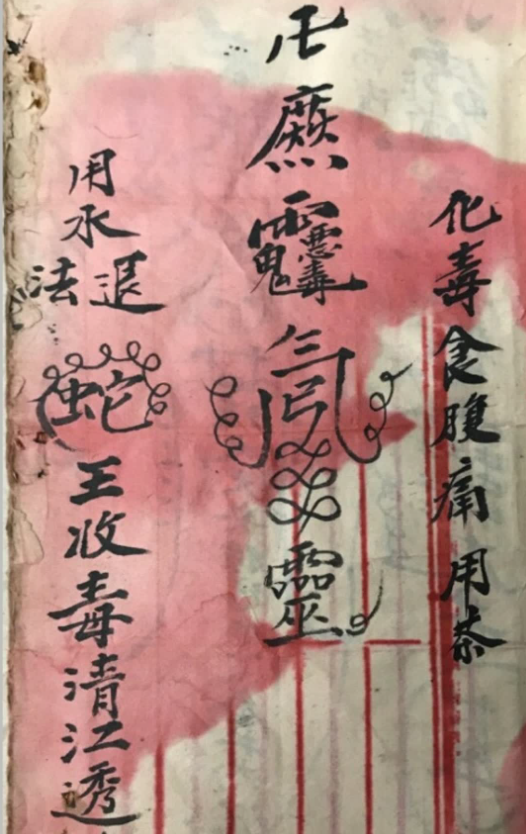 化毒食腹痛用茶
卍
靈
用水退法
蛇王收毒清江透